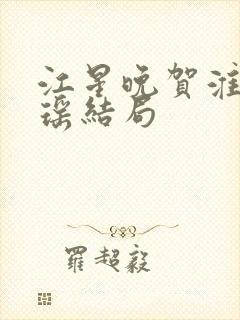 江星晚賀淮
瑶結局
羅超毅